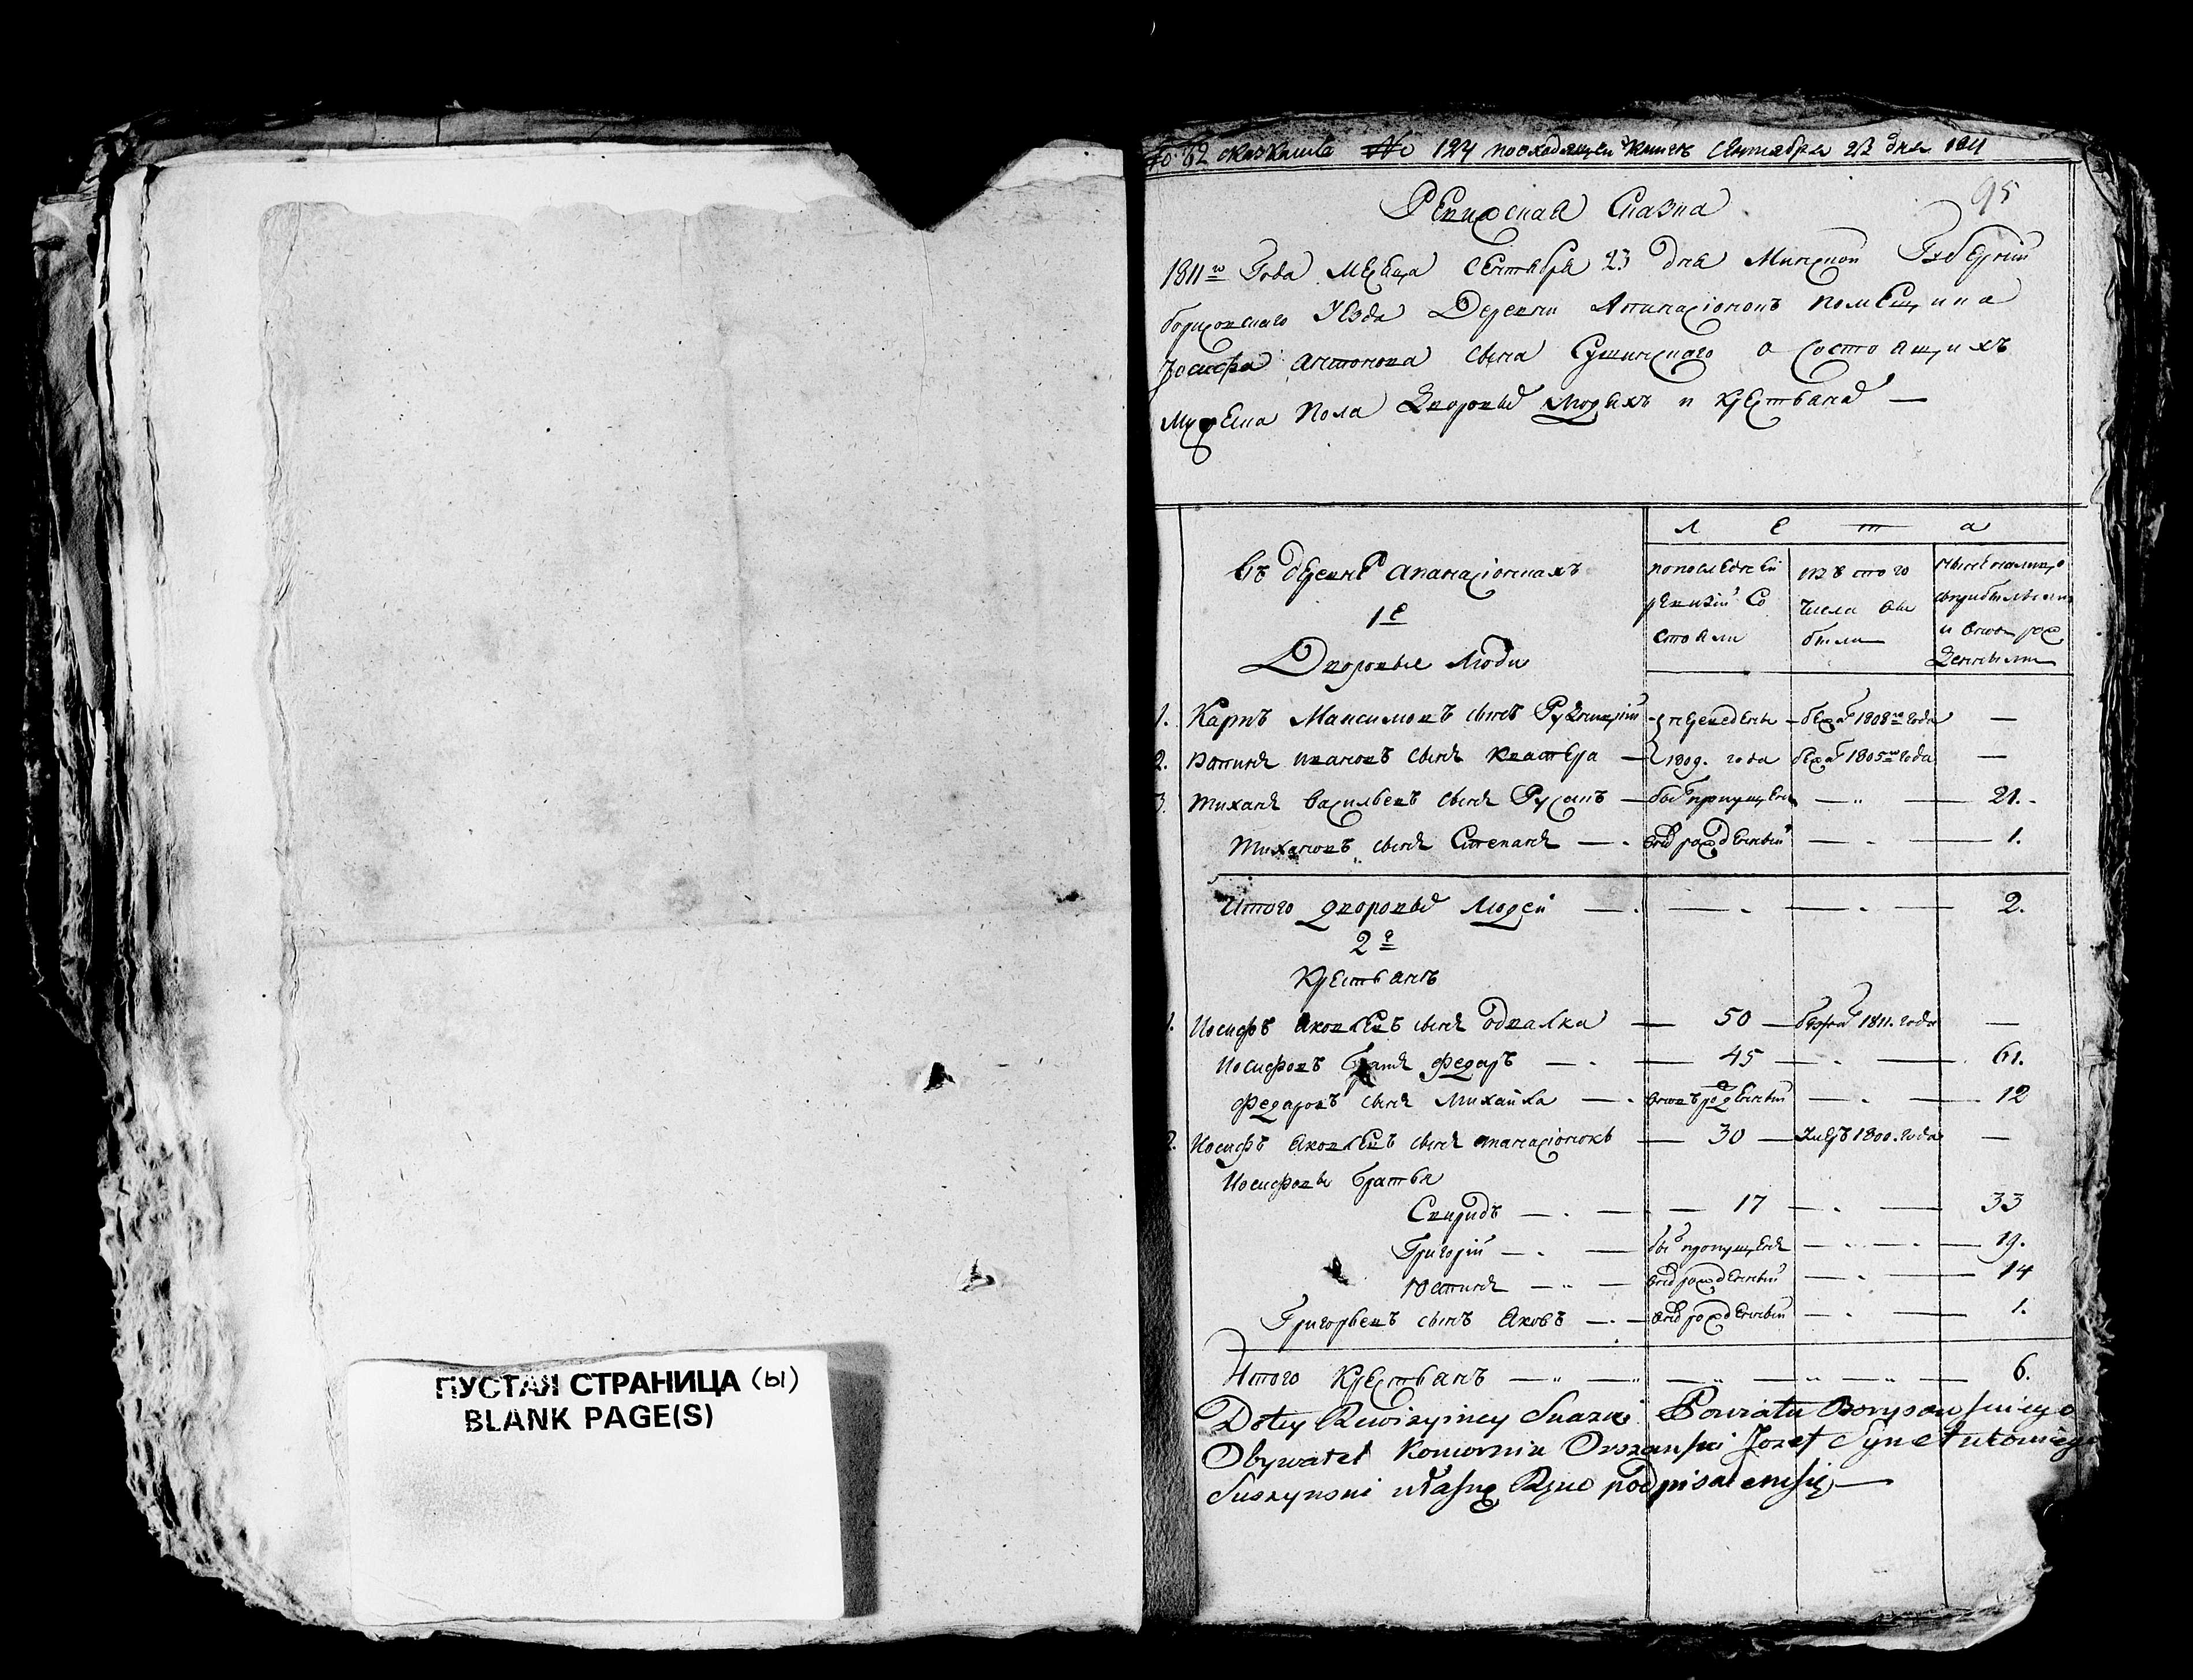 сказками № 124 по входящей книге Сентября 23 дня 1811
95
Ревизская Сказка
1811го Года Месеца Сентября 23 дня Минской Губернии
борисовского Уезда Деревни Апанасіонокъ помещика
Іосифа антонова сына Сушинского о состоящихъ
Мужеска пола Дворовыхъ людехъ и крестьянахъ —
Л е т а
въ деревне апанасіонкахъ
1е
Дворовые люди
по последней ревизіи Состояли
изъ того числа выбыли
ныне на лицо
и внов рожденными
1. Карпъ Максимовъ сынъ — переведены — бежал 1808го года —
2. Юстинъ ивановъ сынъ Кватера — 1809. года бежал 1805го года —
3. Тиханъ васильевъ сынъ Русакъ — был пропущенъ — 21.
Тихановъ сынъ Степанъ — внов рожденный — 1.
Итого дворовых людей — 2.
2е
Крестьянъ
1. Иосифъ яковлевъ сынъ одналка — 50 — бежал 1811. года —
Иосифовъ братъ федаръ — 45 — 61.
Федаровъ сынъ Михайла — вновъ рожденный — 12
2. Иосифъ яковлевъ сынъ апанасіонокъ — 30 — умеръ 1800. года —
Иосифовы братья
Спиридъ — 17 — 33
Григорій — был пропущенъ — 19.
Юстинъ — внов рожденный — 14
Григорьевъ сынъ яковъ — внов рожденный — 1.
Итого Крестьянъ — 6.
Dotey Rewizyiney Skazki Powiatu Borysowskiego
Obywatel Komornik Orszanski Jozef Syn Antoniego
Suszynski własną Ręką podpisałemsię —
ПУСТАЯ СТРАНИЦА (Ы)
BLANK PAGE(S)